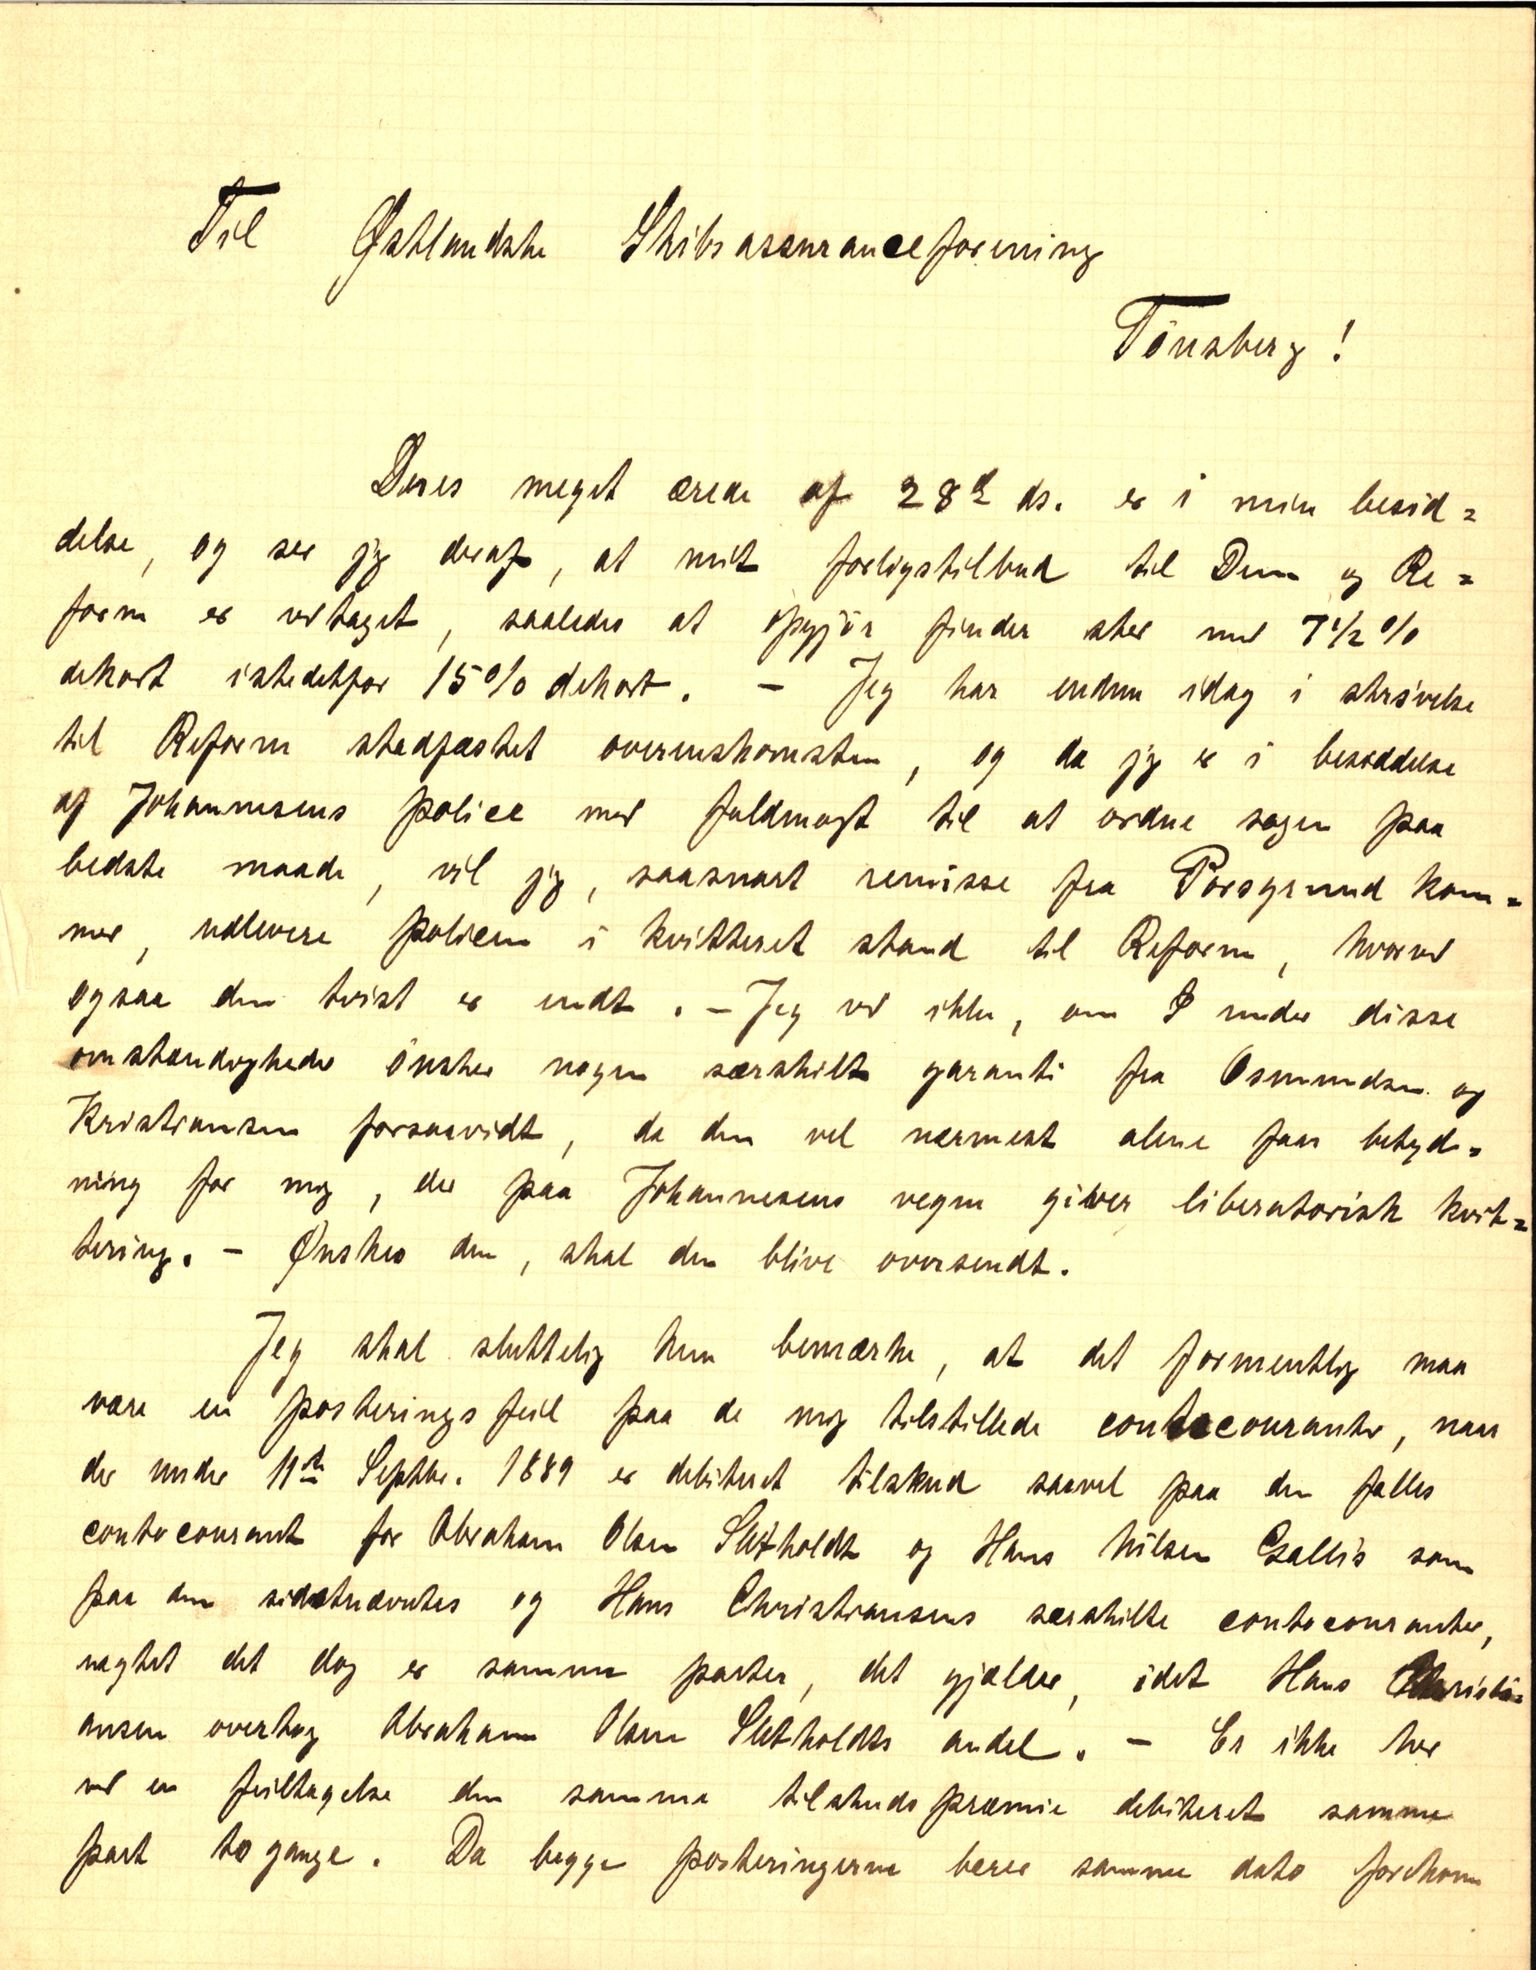 Til Østlandske Skibsassuranceforening
Tönsberg!
Deres meget ærede af 28de ds. er i min besid=
delse, og ser jeg deraf, at mit forligstilbud til Dem og Re=
form er vedtaget, saaledes at opgjör finder sted med 7 1/2 %
dekort istedetfor 15% dekort. — Jeg har endnu idag i skrivelse
til Reform stadfæstet overenskomsten, og da jeg er i besiddelse
af Johannesens police med fuldmagt til at ordne sagen paa
bedste maade, vil jeg, saasnart remisse fra Porsgrund kom=
mer, udlevere policen i kvitteret stand til Reform, hvorved
ogsaa den tvist er endt. — Jeg ved ikke, om I under disse
omstændigheder önsker nogen særskilt garanti fra Osmundsen og
Kristiansen forsaavidt, da den vel nærmest alene faar betyd=
ning for mig, der paa Johannesens vegne giver liberatorisk kvit=
tering. — Ønskes den, skal den blive oversendt.
Jeg skal sluttelig kun bemærke, at det formentlig maa
være en posteringsfeil paa de mig tilstillede contocouranter, naar
der under 11te Septbr. 1889 er debiteret tilskud saavel paa den fælles
contocourant for Abraham Olsen Sletholdt og Hans Nilsen Gallis som
paa den sidstnævntes og Hans Christiansens særskilte contocouranter,
uagtet det dog er samme parter, det gjælder, idet Hans Christi=
ansen overtog Abraham Olsen Sletholdts andel. — Er ikke her
ved en feiltagelse den samme tilskudspræmie debiteret samme
part to gange. Da begge posteringerne bærer samme dato forekom